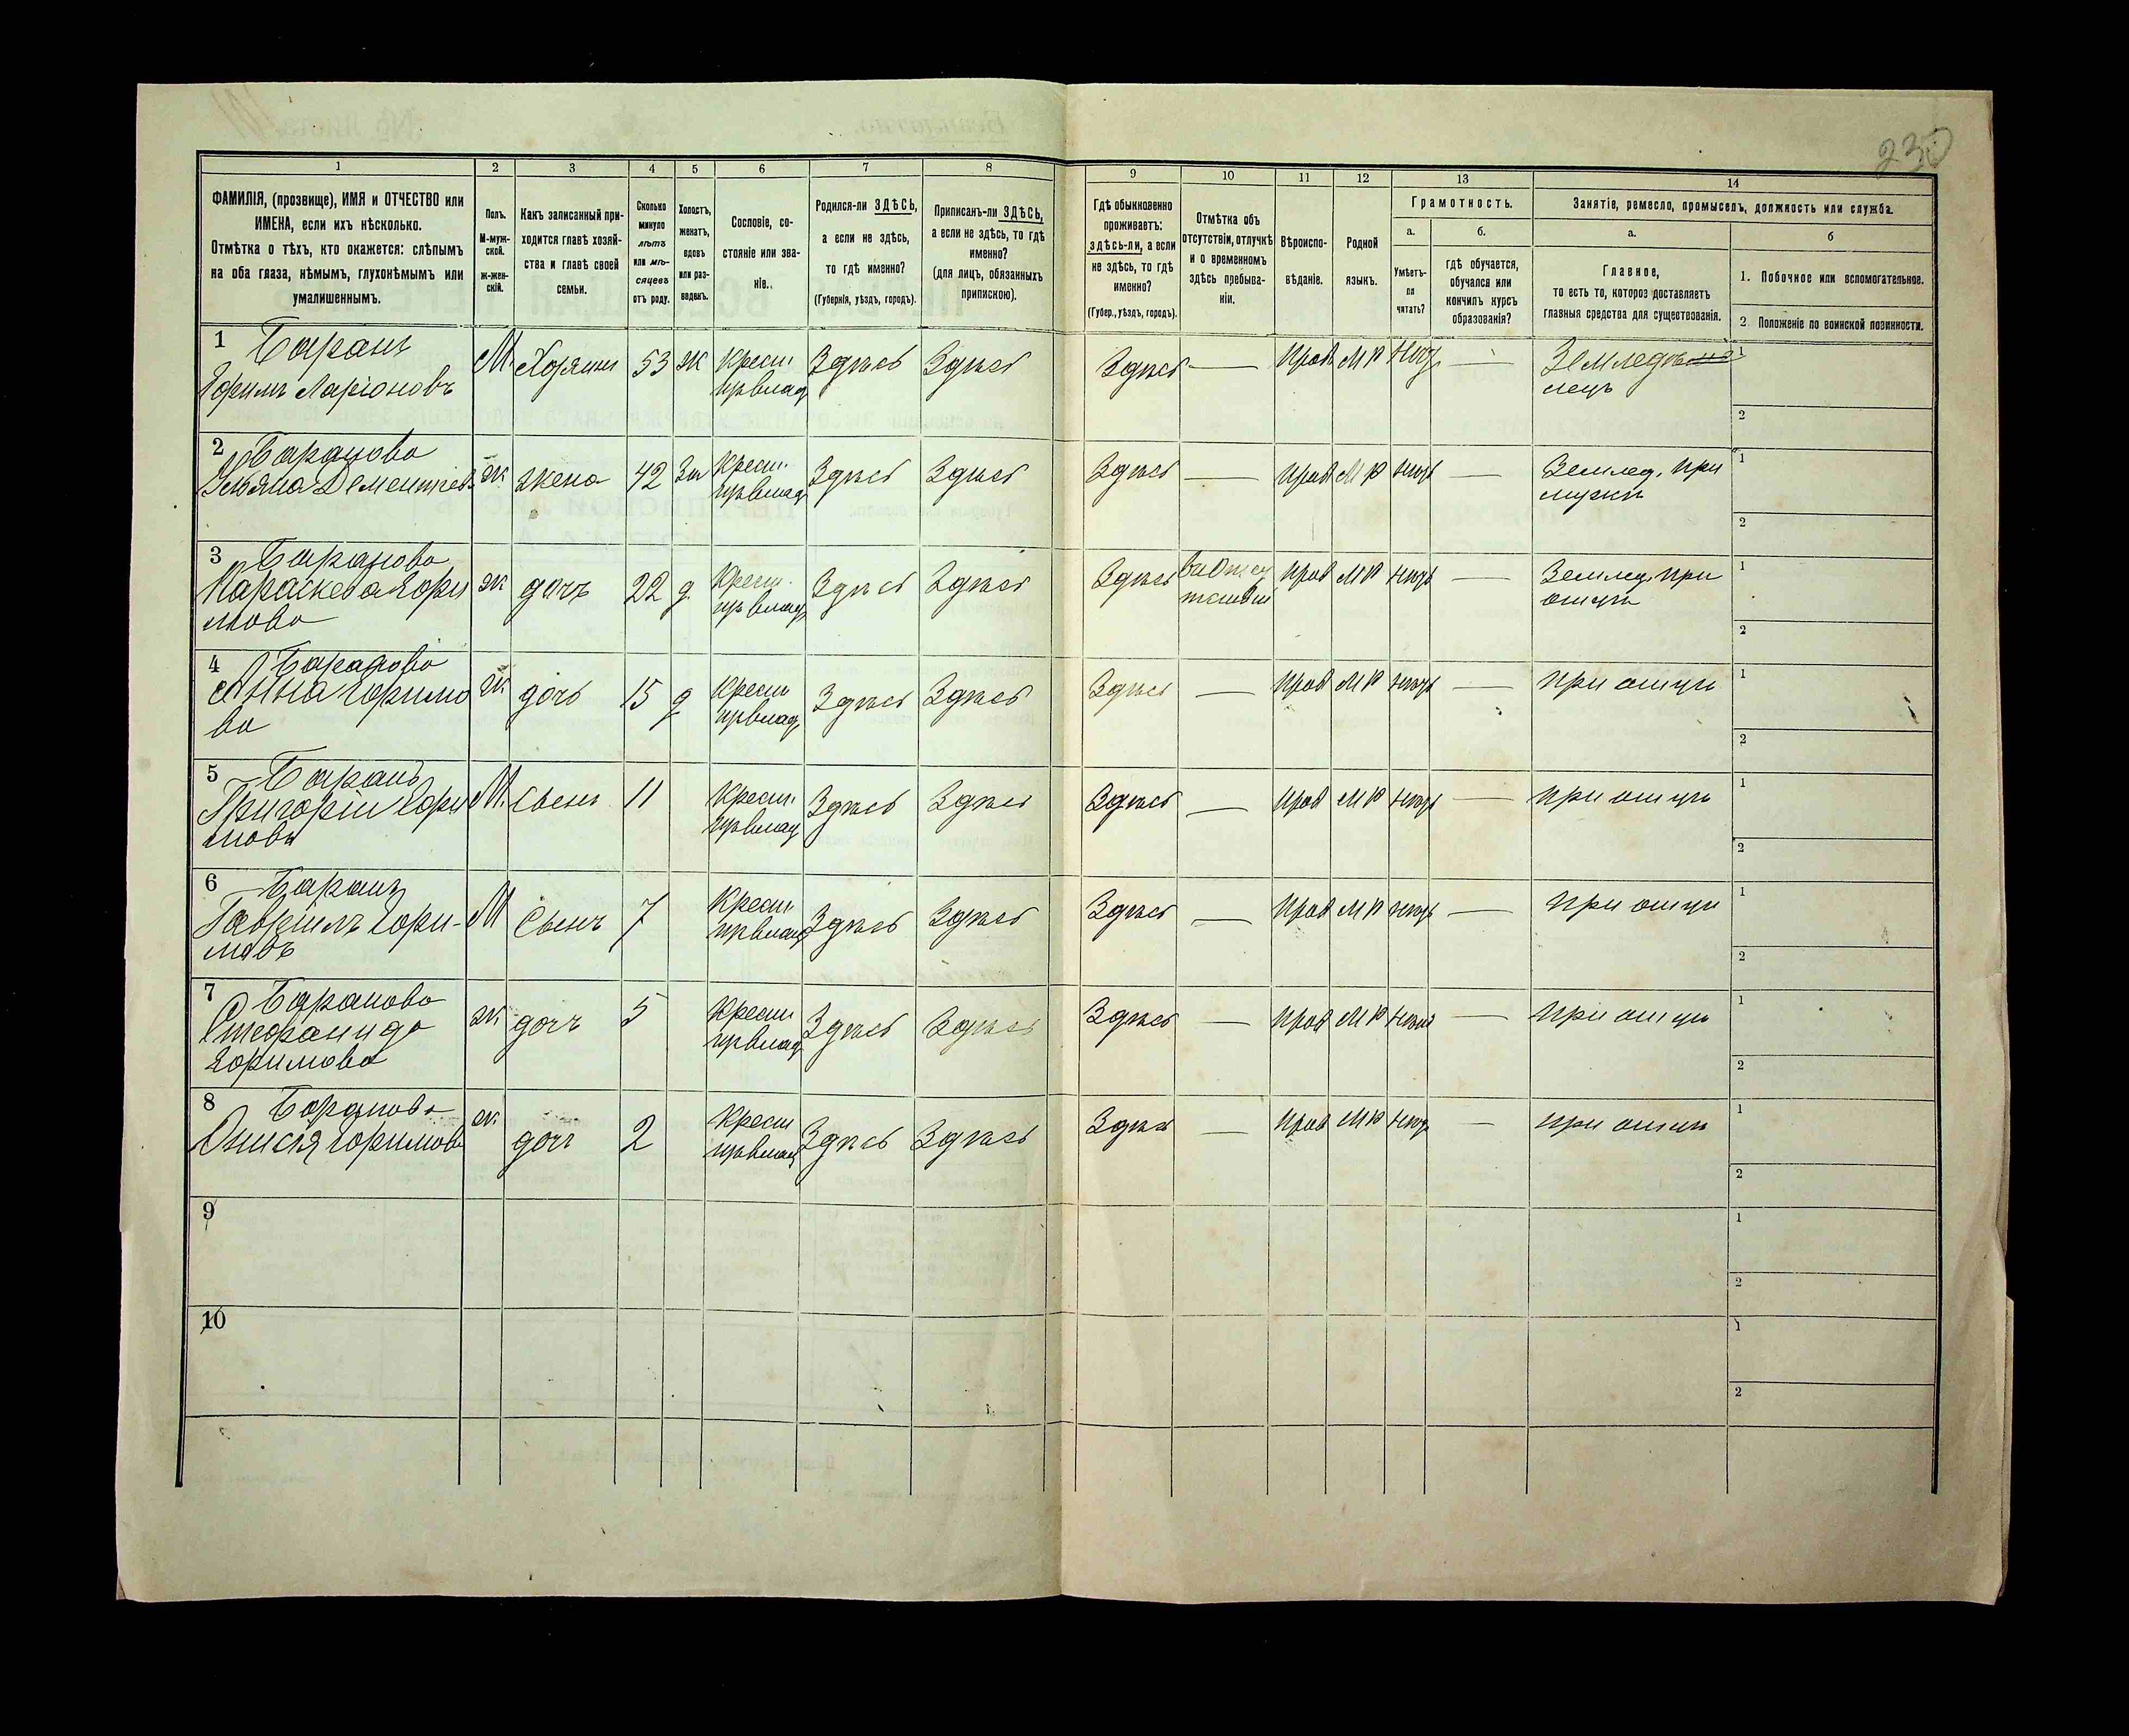 230
1
2
3
4
5
6
7
8
ФАМИЛІЯ, (прозвище), ИМЯ и ОТЧЕСТВО или
ИМЕНА, если ихъ нѣсколько.
Отмѣтка о тѣхъ, кто окажется: слѣпымъ
на оба глаза, нѣмымъ, глухонѣмымъ или
умалишеннымъ.
Полъ.
М-муж-
ской.
ж-жен-
скій.
Какъ записанный при-
ходится главѣ хозяй-
ства и главѣ своей
семьи.
Сколько
минуло
лѣтъ
или мѣ-
сяцевъ
отъ роду.
Холостъ,
женатъ,
вдовъ
или раз-
веденъ.
Сословіе, со-
стояніе или зва-
ніе.
Родился-ли ЗДѢСЬ,
а если не здѣсь,
то гдѣ именно?
(Губернія, уѣздъ, городъ).
Приписанъ-ли ЗДѢСЬ,
а если не здѣсь, то гдѣ
именно?
(для лицъ, обязанныхъ
припискою).
9
10
11
12
13
14
Гдѣ обыкновенно
проживаетъ:
здѣсь-ли, а если
не здѣсь, то гдѣ
именно?
(Губер., уѣздъ, городъ).
Отмѣтка объ
отсутствіи, отлучкѣ
и о временномъ
здѣсь пребыва-
ніи.
Вѣроиспо-
вѣданіе.
Родной
языкъ.
Грамотность.
а.
Умѣетъ-
ли
читать?
б.
гдѣ обучается,
обучался или
кончилъ курсъ
образованія?
Занятіе, ремесло, промыселъ, должность или служба.
а.
Главное,
то есть то, которое доставляетъ
главныя средства для существованія.
б
1. Побочное или вспомогательное.
2. Положеніе по воинской повинности.
1 Баранъ
Ларіоновъ
М. Хозяинъ 53 ж Крест. Здѣсь Здѣсь
Здѣсь — Прав М Р Нѣтъ —
1
2
2 Баранова
Ульяна Дементьев.
ж жена 42 За Крест. Здѣсь Здѣсь
Здѣсь — Прав М Р Нѣтъ — Землед. при
мужѣ
1
2
3 Баранова
Параскева
ж дочь 22 д Крест. Здѣсь Здѣсь
Здѣсь Прав М Р Нѣтъ — Землед. при
отцѣ
1
2
4 Баранова
Анна
ва
ж дочь 15 д Крест Здѣсь Здѣсь
Здѣсь — Прав М Р Нѣтъ — при отцѣ
1
2
5 Баранъ
Григорій
мовъ
М. Сынъ 11 Крест. Здѣсь Здѣсь
Здѣсь — Прав М Р Нѣтъ — при отцѣ
1
2
6 Баранъ
Гавріилъ
мовъ
М Сынъ 7 Крест Здѣсь Здѣсь
Здѣсь — Прав М Р Нѣтъ — при отцѣ
1
2
7 Баранова
Стефанида
ж дочь 5 Крест Здѣсь Здѣсь
Здѣсь — Прав М Р — при отцѣ
1
2
8 Баранова
Анисія
ж. дочь 2 Крест Здѣсь Здѣсь
Здѣсь — Прав М Р Нѣтъ — при отцѣ
1
2
9
1
2
10
1
2